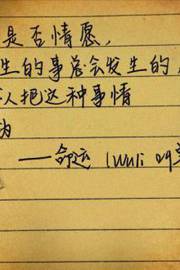 是否情愿,
生的事总会发生的,
人把这种事情
为
——命运 (wuli 的